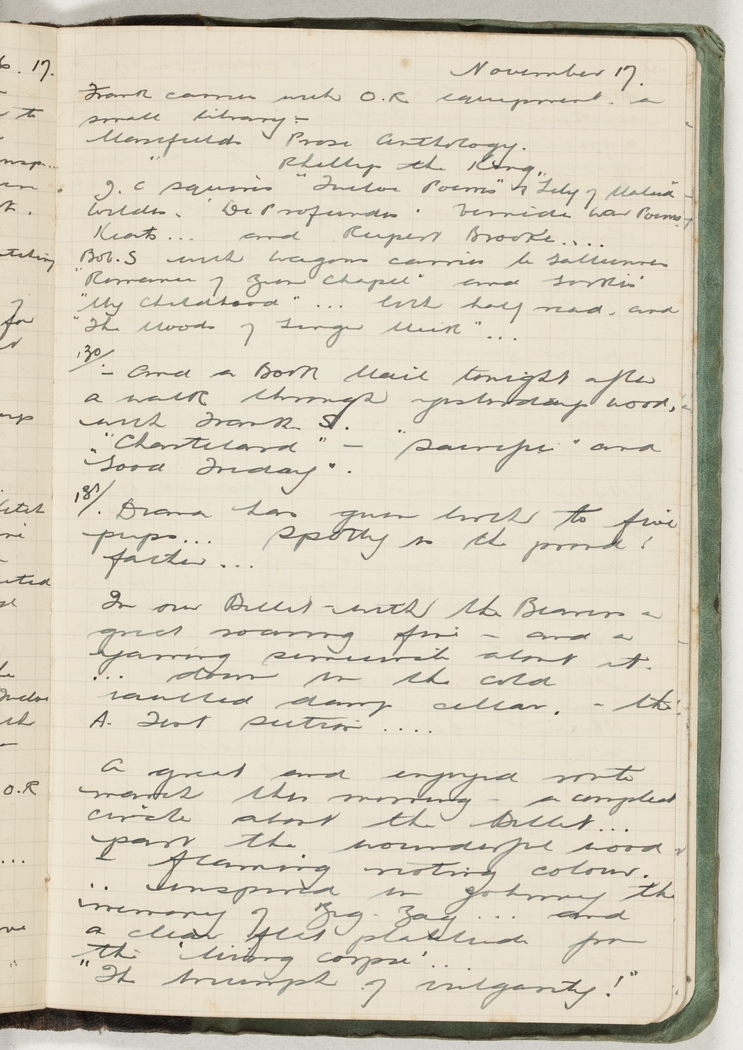 November 17.
Frank carries with O.R equipment. a
small library:-
Masefields Prose Anthology.
" Phillip the King,"
J.C Squires "Twelve Poems" & Lily of Malud -
Wildes. 'De Profundis'. Vernède War Poems,
Keats... and Rupert Brooke....
Bob. S with wagons carries le Galliennes
"Romance of Zion Chapel" and Gorkis
"My Childhood"... both half read, and
"The Woods of
130/
- and a Book Mail tonight after
a walk through yesterdays wood,
with Frank S.
"Chanteland" - "Sacrifice" and
"Good Friday".
131/. Diana has given birth to five
pups... Spotty is the proud
father...
In our Billet - with the Beavers a
great roaring fire - and a
yarning semicircle about it.
... down in the cold
vaulted damp cellar. - the
A. Tent Section....
A great and enjoyed route
march this morning - a compleat
circle about the Billet...
past the wounderful wood
- flaming rioting colour.
... inspired in Johnny the
memory of Zig-Zag... and
a clear flat platitude from
the 'living corpse'...
"The triumph of vulgarity!"
17.
to
for
O.R
...